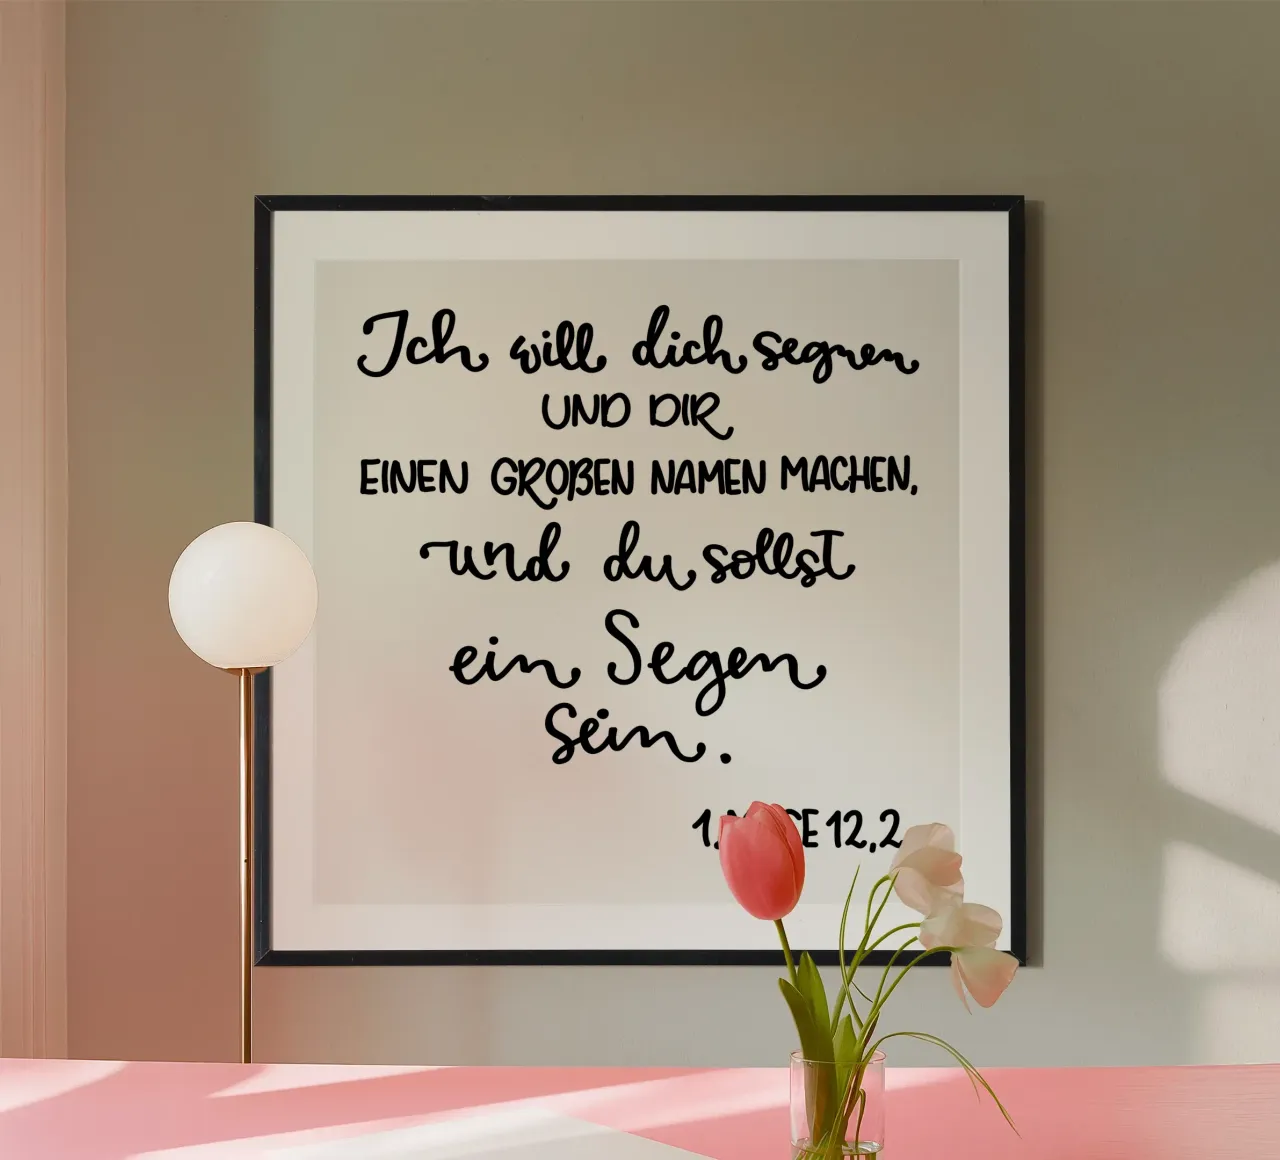 Ich will dich segnen
UND DIR
EINEN GROßEN NAMEN MACHEN,
und du sollst
ein Segen
sein.
12,2